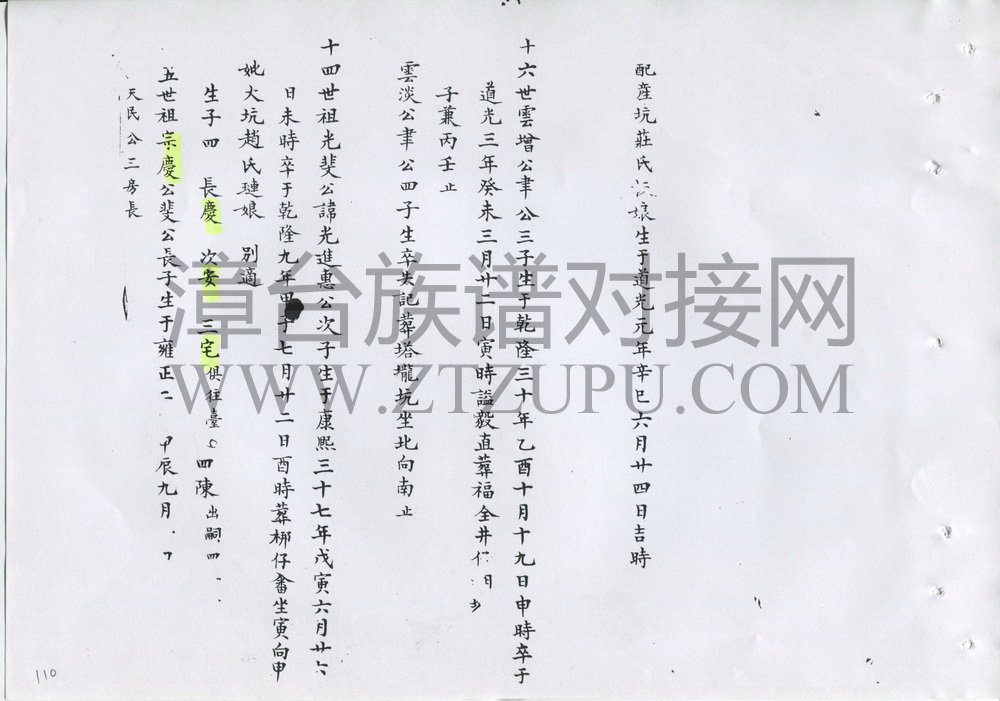 配產坑莊氏 娘生于道光元年辛巳六月廿四日吉時
十六世雲增公聿公三子生于乾隆三十年乙酉十月十九日申時卒于
道光三年癸未三月廿二日寅時謚毅直葬福全井仔
子兼丙壬止
雲淡公聿公四子生卒失記葬塔壠坑坐北向南止
十四世祖光斐公諱光進惠公次子生于康熙三十七年戊寅六月廿六
日未時卒于乾隆九年甲子七月廿二日酉時葬梆仔畬坐寅向申
妣大坑趙氏璉娘 別適
生子四 長慶 次安 三宅俱往臺 四陳出嗣四
五世祖宗慶公斐公長子生于雍正二 甲辰九月
天民公三房長
110
漳台族谱对接网
WWW.ZTZUPU.COM